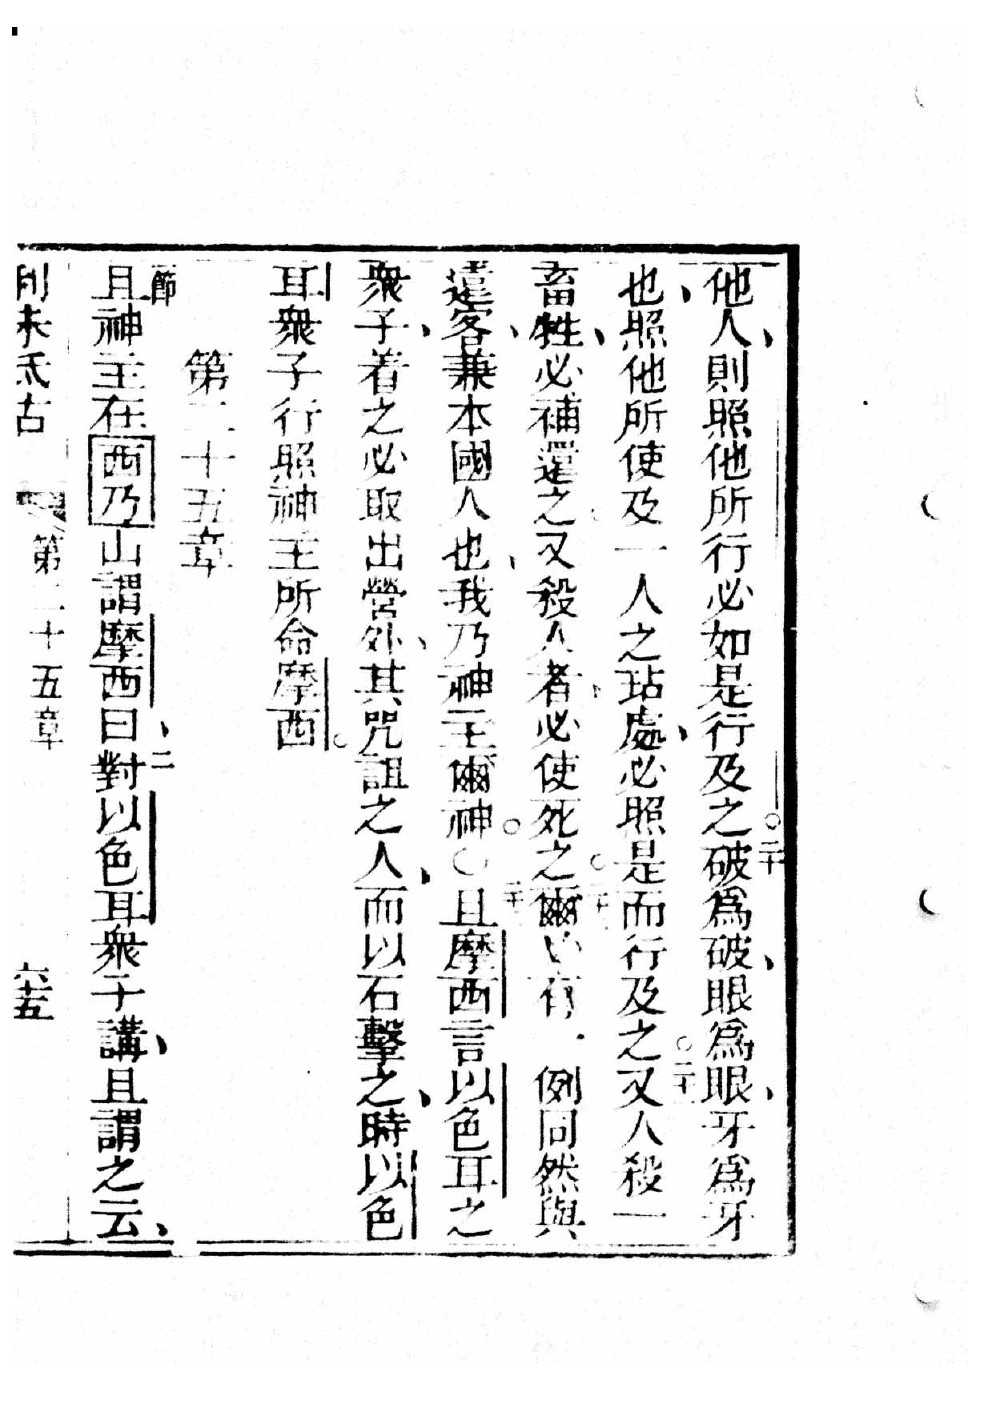 他人、則照他所行必如是行及之。二十破爲破、眼爲眼、牙爲牙
也、照他所使及一人之玷處、必照是而行及之。二十又人殺一
畜牲、必補還之。又殺人者、必使死之。二十爾必有一例同然與
遠客、兼本國人也、我乃神主爾神。○二十且摩西言以色耳之
衆子、着之必取出營外、其咒詛之人、而以石擊之、時以色
耳衆子行照神主所命摩西。
第二十五章
節且神主在西乃山謂摩西曰、二對以色耳衆子講、且謂之云、
利未氏古 第二十五章 六十五